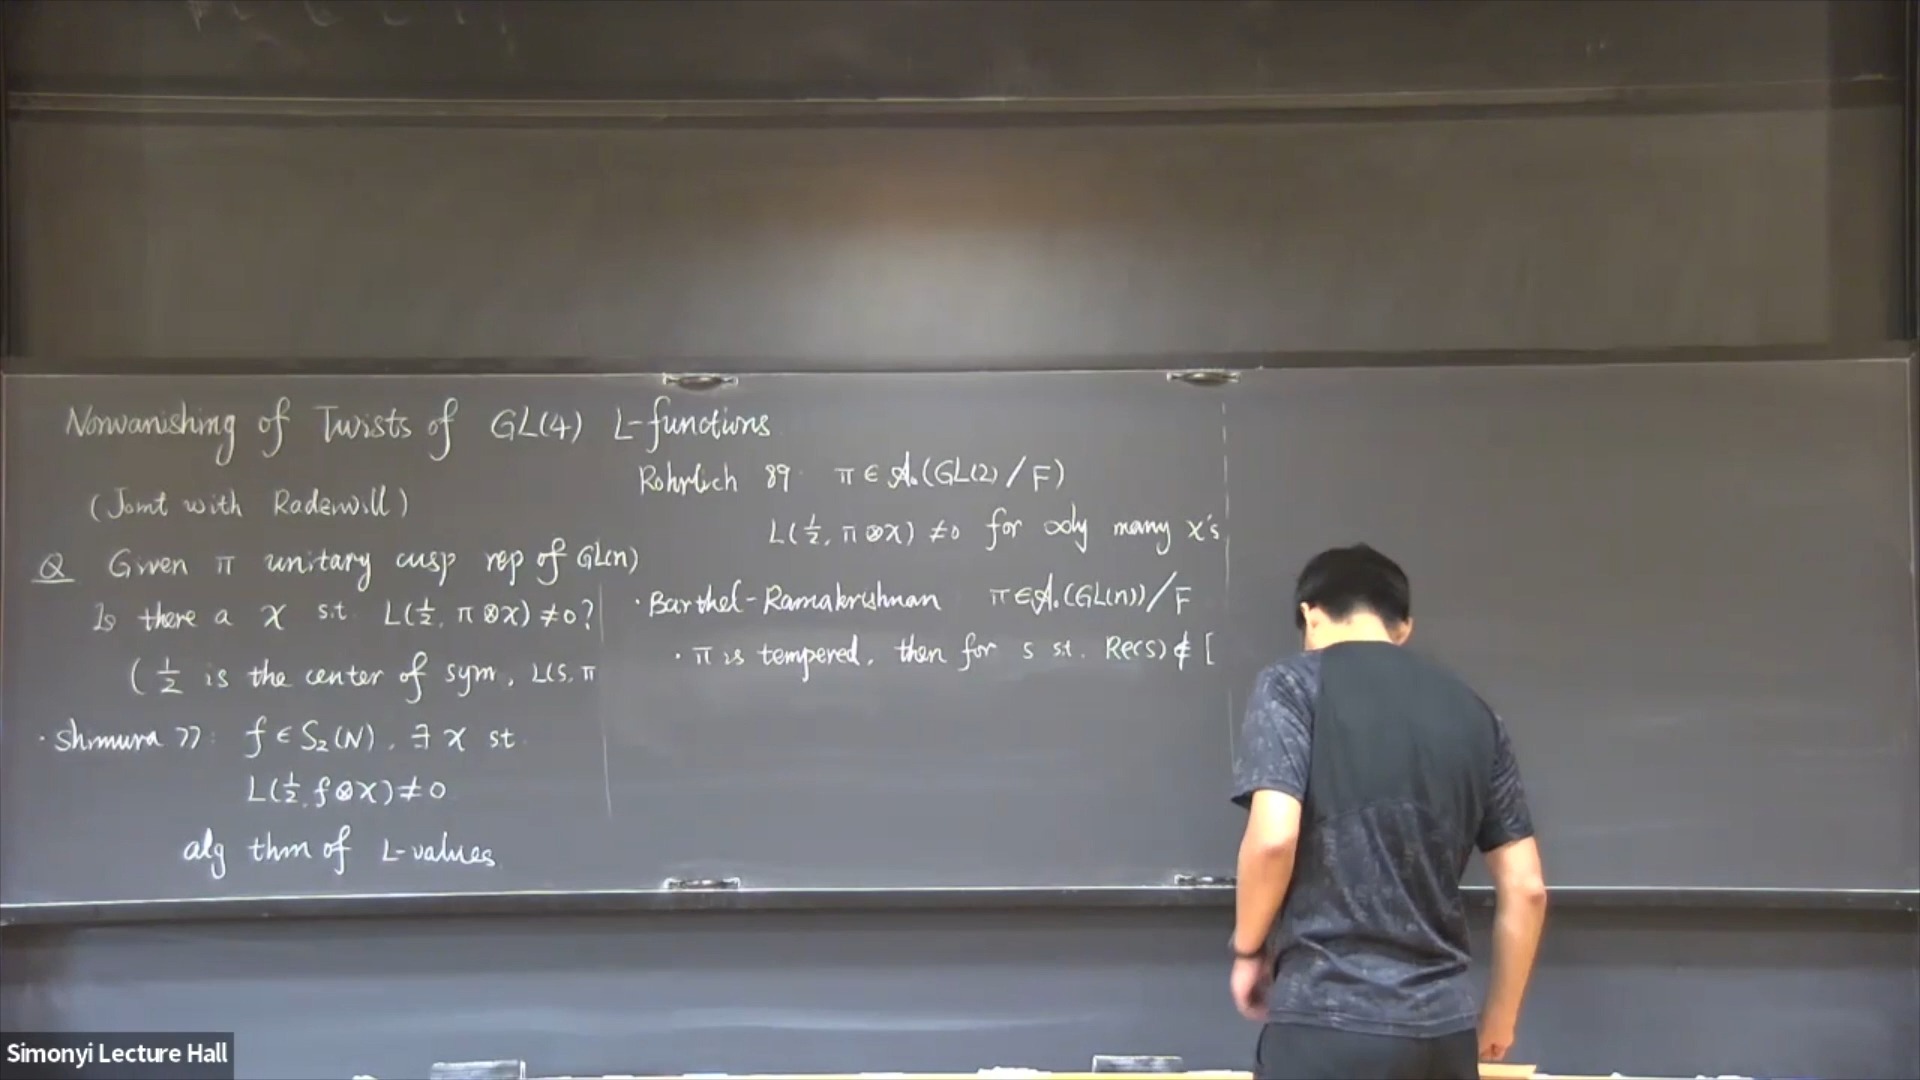 Nonvanishing of Twists of GL(4) L-functions
(Joint with Radziwill)
Q Given π unitary cusp rep of GL(n)
Is there a χ s.t. L(½, π⊗χ) ≠ 0?
(½ is the center of sym, L(s, π
· Shimura 77: f ∈ S₂(N), ∃ χ st
L(½, f⊗χ) ≠ 0
alg thm of L-values
Rohrlich 89 π ∈ A₀(GL(2)/F)
L(½, π⊗χ) ≠ 0 for ∞ly many χ's
· Barthel-Ramakrishnan π ∈ A₀(GL(n))/F
· π is tempered, then for s st. Re(s) ∉ [
Simonyi Lecture Hall